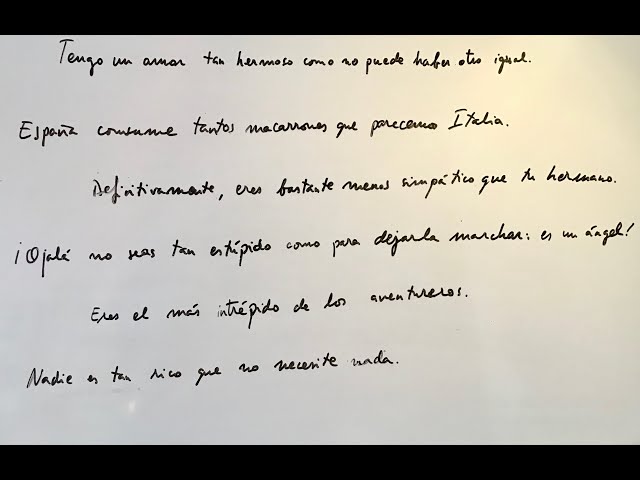 Tengo un amor tan hermoso como no puede haber otro igual.
España consume tantos macarrones que parecemos Italia.
Definitivamente, eres bastante menos simpático que tu hermano.
¡Ojalá no seas tan estúpido como para dejarla marchar: es un ángel!
Eres el más intrépido de los aventureros.
Nadie es tan rico que no necesite nada.